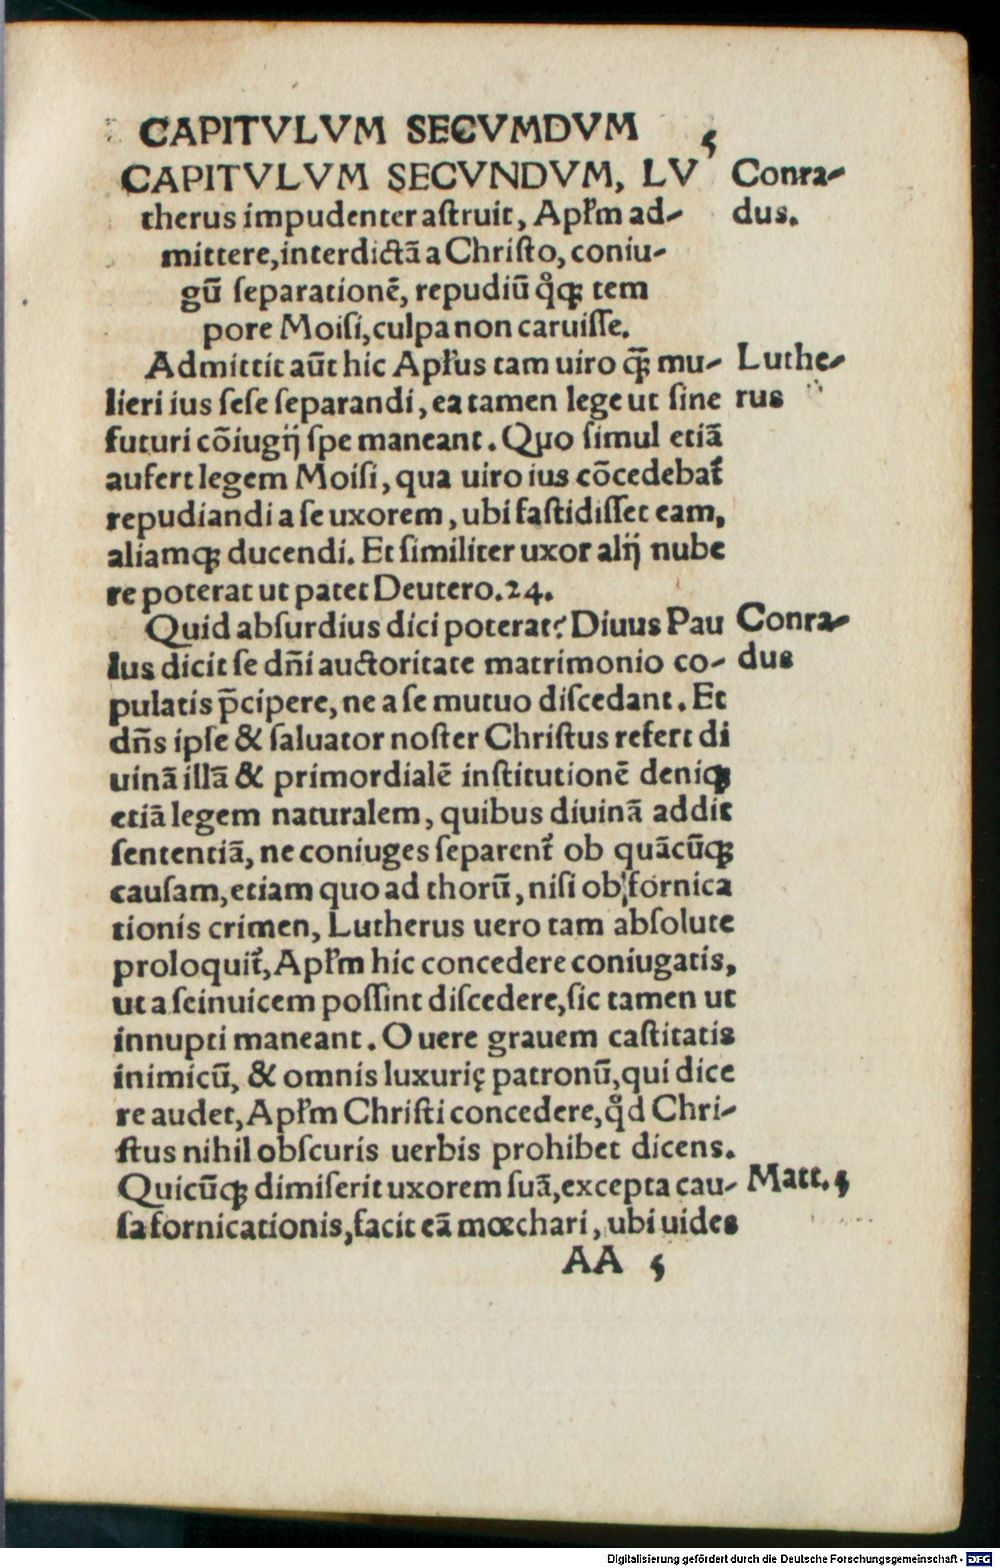 CAPITVLVM SECVMDVM 5
CAPITVLVM SECVNDVM, LV Conra-
therus impudenter aſtruit, Apłm ad- dus.
mittere, interdictã a Chriſto, coniu-
gũ ſeparationẽ, repudiũ qͦqꝫ tem
pore Moiſi, culpa non caruiſſe.
Admittit aũt hic Apłus tam uiro qꝫ̃ mu- Luthe-
lieri ius ſeſe ſeparandi, ea tamen lege ut ſine rus
futuri cõiugij ſpe maneant. Quo ſimul etiã
aufert legem Moiſi, qua uiro ius cõcedebat᷑
repudiandi a ſe uxorem, ubi faſtidiſſet eam,
aliamqꝫ ducendi. Et ſimiliter uxor alij nube
re poterat ut patet Deutero. 24.
Quid abſurdius dici poterat? Diuus Pau Conra-
lus dicit ſe dñi auctoritate matrimonio co- dus
pulatis p̃cipere, ne a ſe mutuo diſcedant. Et
dñs ipſe & ſaluator noſter Chriſtus refert di
uinã illã & primordialẽ inſtitutionẽ deniqꝫ
etiã legem naturalem, quibus diuinã addit
ſententiã, ne coniuges ſeparent᷑ ob quãcũqꝫ
cauſam, etiam quo ad thorũ, niſi ob fornica
tionis crimen, Lutherus uero tam abſolute
proloquit᷑, Apłm hic concedere coniugatis,
ut a ſeinuicem poſſint diſcedere, ſic tamen ut
innupti maneant. O uere grauem caſtitatis
inimicũ, & omnis luxurię patronũ, qui dice
re audet, Apłm Chriſti concedere, qͦd Chri-
ſtus nihil obſcuris uerbis prohibet dicens.
Quicũqꝫ dimiſerit uxorem ſuã, excepta cau- Matt. 5
ſa fornicationis, facit eã mœchari, ubi uides
AA 5
Digitalisierung gefördert durch die Deutsche Forschungsgemeinschaft - DFG